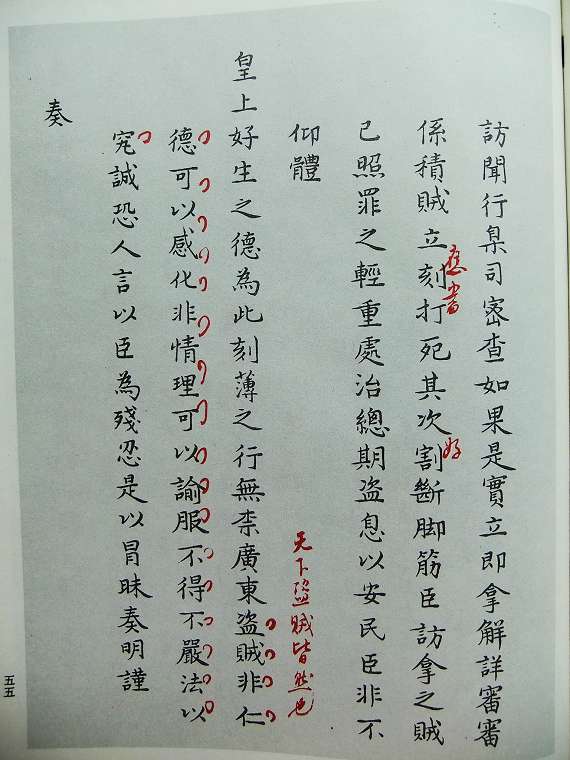 訪聞行臬司密查如果是實立即拿解詳審審
係積賊立刻打死其次割斷脚筋臣訪拿之賊
應當
好
已照罪之輕重處治總期盗息以安民臣非不
仰體
天下盜賊皆然也
皇上好生之德為此刻薄之行無柰廣東盜賊非仁
德可以感化非情理可以諭服不得不嚴法以
究誠恐人言以臣為殘忍是以冒昧奏明謹
奏
五五